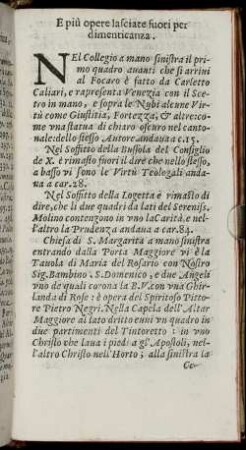 E più opere lasciate fuori per
dimenticanza.
NEl Collegio a mano sinistra il pri
mo quadro auanti che si arriui
al Focaro è fatto da Carletto
Caliari, e rapresenta Venezia con il Sce-
tro in mano, e sopra le Nubi alcune Vir-
tù come Giustitia, Fortezza, & altre: co-
me vna statua di chiaro oscuro nel canto-
nale: dello stesso Autore andaua a c. 15.
Nel Soffitto della Bussola del Consiglio
de X. è rimasto fuori il dire che nello stesso,
a basso vi sono le Virtù Teolegali anda-
na a car. 28.
Nel Soffitto della Logetta è rimasto di
dire, che li due quadri da lati del Sereniss.
Molino contengono in vno la Carità, e nel-
l'altro la Prudenza andaua a car. 84.
Chiesa di S. Margarita a mano sinistra
entrando dalla Porta Maggiore vi è la
Tauola di Maria del Rosario con Nostro
Sig. Bambino, S. Domenico, e due Angeli
vno de quali corona la B. V. con vna Ghir-
landa di Rose: è opera del Spiritoso Pitto-
re Pietro Negri. Nella Capela dell'Altar
Maggiore al lato dritto euui vn quadro in
due partimenti del Tintoretto: in vno
Christo che laua i piedi a gl'Apostoli, nel-
l'altro Christo nell'Horto; alla sinistra la
Ce-